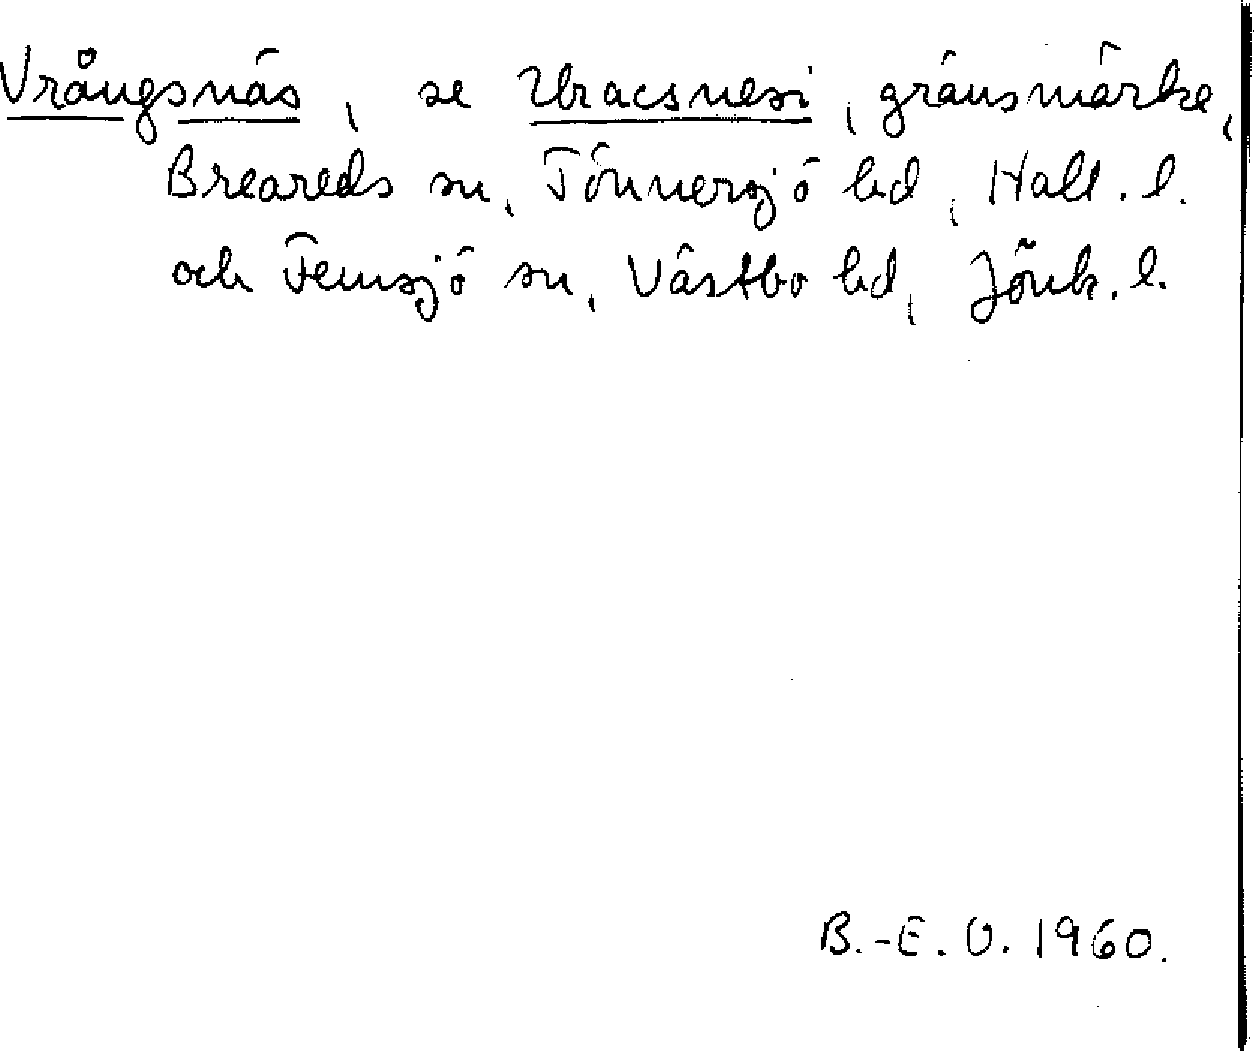 Vrångsnäs, se Uracsnesi, gränsmärke,
Breareds sn, Tönnersjö hd, Hall. l.
och Femsjö sn, Västbo hd, Jönk. l.
B.-E. O. 1960.